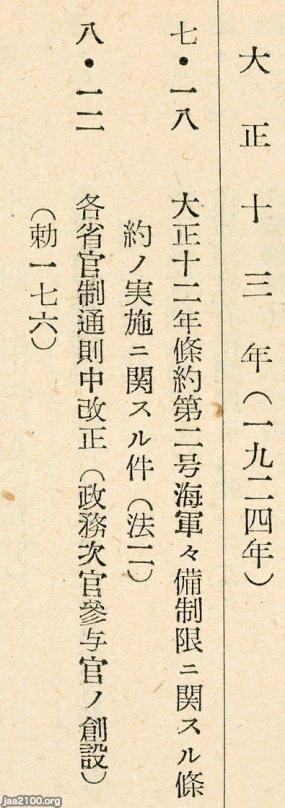 大正十三年(一九二四年)
七・一八 大正十二年條約第二号海軍々備制限ニ関スル條
約ノ実施ニ関スル件(法二)
八・一二 各省官制通則中改正(政務次官參与官ノ創設)
(勅一七六)
Jaa2100.org